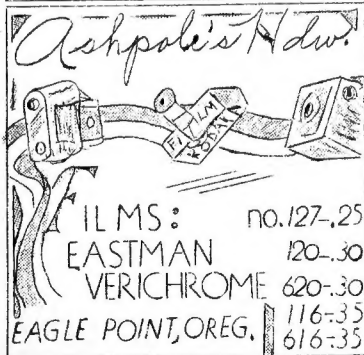 Ashpole's Hdw.
FILM
KODAK
FILMS: no.127-.25
EASTMAN 120-.30
VERICHROME 620-.30
116-.35
EAGLE POINT, OREG. 616-.35